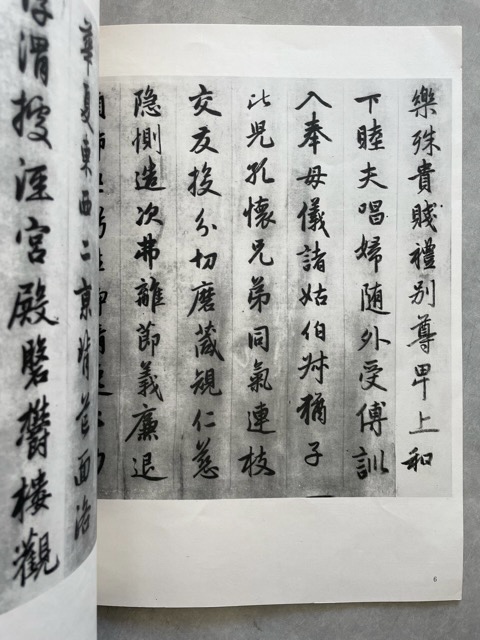 樂殊貴賤禮別尊卑上和
下睦夫唱婦随外受傅訓
入奉母儀諸姑伯叔猶子
比兒孔懷兄弟同氣連枝
交友投分切磨箴規仁慈
隐惻造次弗離節義廉退
6
華夏東西二京背芒面洛
渭據涇宮殿盤鬱樓觀